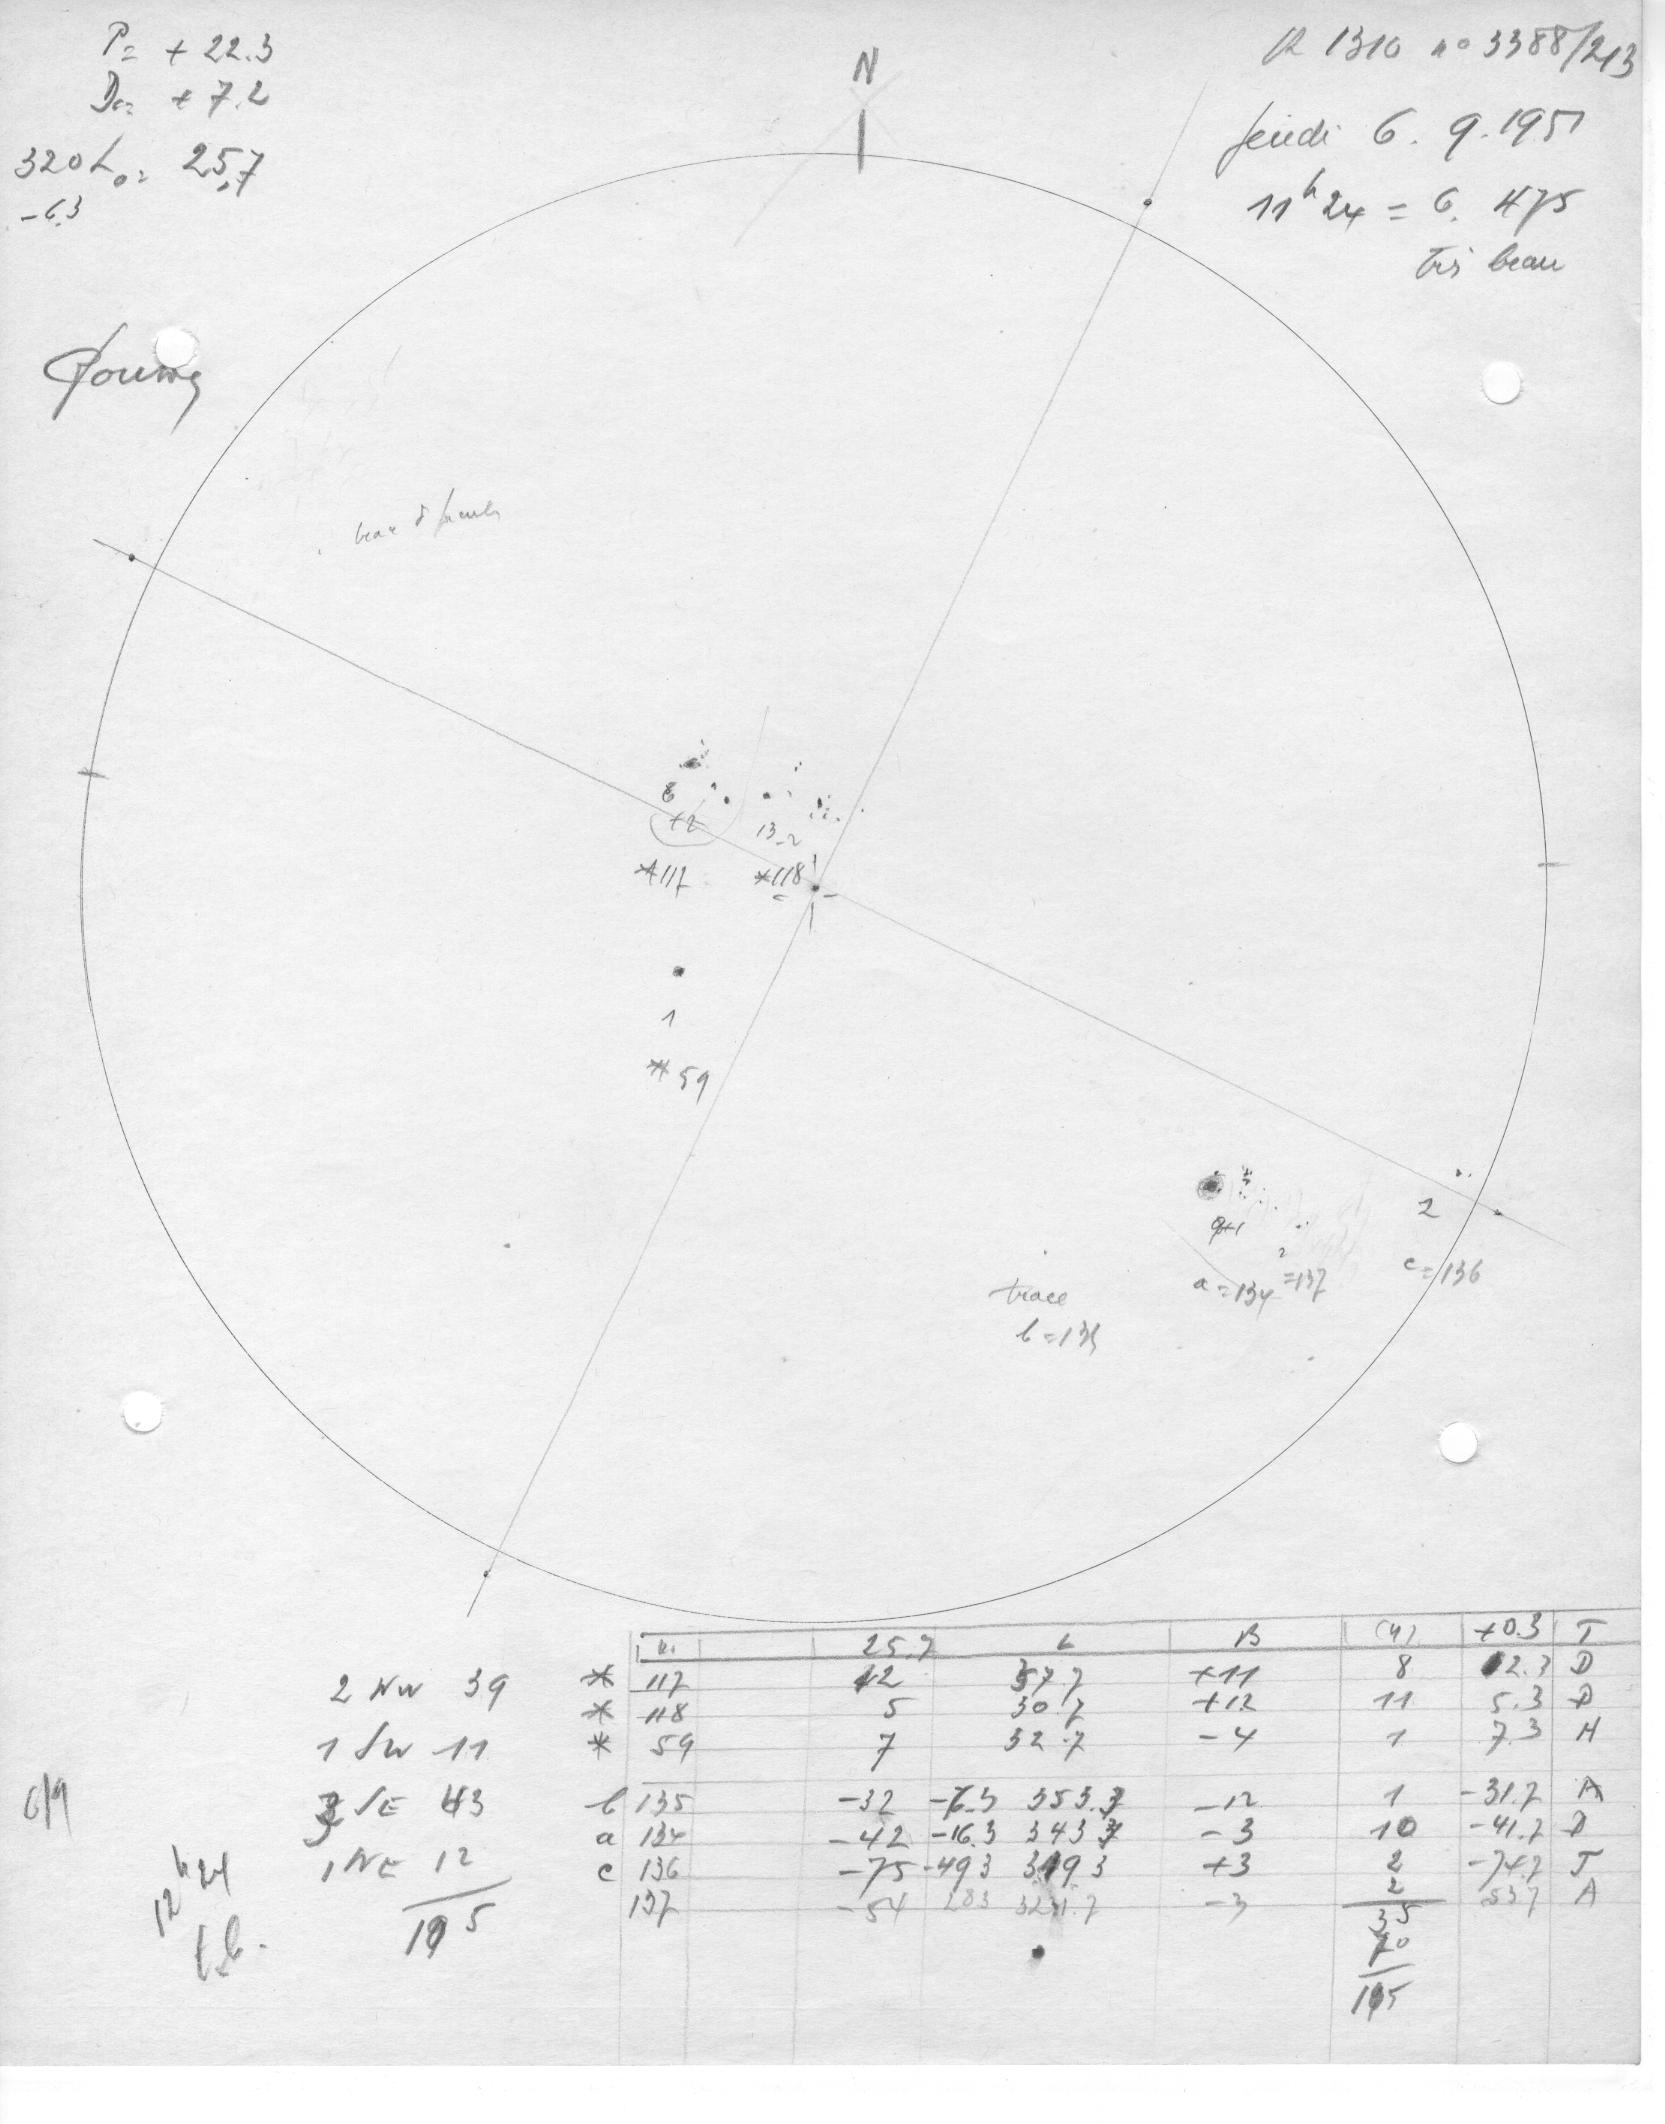 P= + 22.3
D0= + 7.2
320 L0= 25,7
-6.3
N
R 1310 no 3388/213
Jeudi 6. 9. 1951
11h24 = 6. 475
très beau
8
+2
*117
13-2
*118
1
*59
9+1
a=134
2
=137
2
c=136
trace
b=135
n. 25.7 L B (4) +0.3 T
2 NW 39 * 117 12 37.7 +11 8 12.3 D
* 118 5 30.7 +12 11 5.3 D
1 SW 11 * 59 7 32.7 -4 1 7.3 H
6/9
3 SE 43 b 135 -32 -6.3 353.7 -12 1 -31.7 A
a 134 -42 -16.3 343.7 -3 10 -41.7 D
1 NE 12 c 136 -75 -49.3 -74.7 +3 2 J
137 -54 -3 2 53.7 A
105
12h24
t.b.
35
70
105